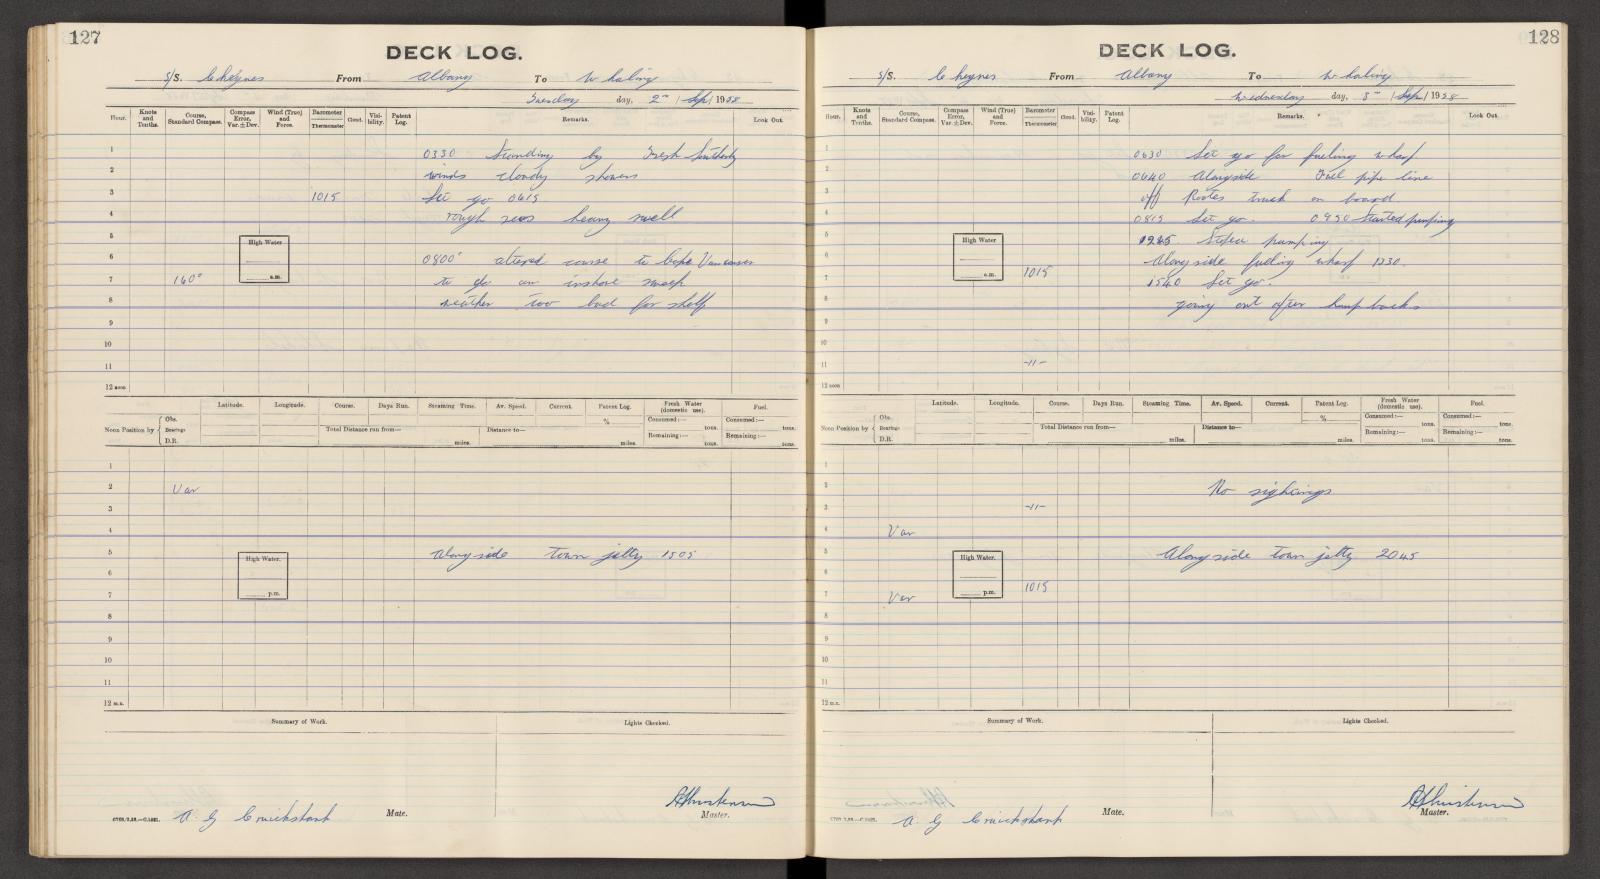 127
DECK LOG.
S/S. Cheynes From Albany To Whaling
Tuesday day, 2nd / Sep / 1958
Hour. Knots and Tenths. Course, Standard Compass. Compass Error, Var. ± Dev. Wind (True) and Force. Barometer Thermometer Cloud. Visi- bility. Patent Log. Remarks. Look Out.
1 0330 Standing by Fresh Southerly
2 winds cloudy showers
3 1015 Set go 0615
4 rough seas heavy swell
5 High Water
6 0800 altered course to Cape Vancouver
7 160° a.m. to do an inshore sweep
8 weather too bad for shelf
9
10
11
12 noon
Latitude. Longitude. Course. Days Run. Steaming Time. Av. Speed. Current. Patent Log. Fresh Water (domestic use). Fuel.
Noon Position by { Obs. Bearings D.R.
% Consumed:— tons. Consumed:— tons.
Total Distance run from— miles. Distance to— miles. Remaining:— tons. Remaining:— tons.
1
2 Var
3
4
5 High Water. Alongside town jetty 1505
6
7 p.m.
8
9
10
11
12 m.n.
Summary of Work. Lights Checked.
A. G Cruickshank Mate. Master.
128
DECK LOG.
S/S. Cheynes From Albany To Whaling
Wednesday day, 3rd / Sep / 1958
Hour. Knots and Tenths. Course, Standard Compass. Compass Error, Var. ± Dev. Wind (True) and Force. Barometer Thermometer Cloud. Visi- bility. Patent Log. Remarks. Look Out.
1 0630 Set go for fueling wharf
2 0640 Alongside Fuel pipe line
3 off Rootes truck on board
4 0815 Set go. 0950 Started pumping
5 High Water pumping
6 Alongside fueling wharf 1330.
7 a.m. 1015 1540 Set go.
8 going out after humpbacks
9
10
11 -11-
12 noon
Latitude. Longitude. Course. Days Run. Steaming Time. Av. Speed. Current. Patent Log. Fresh Water (domestic use). Fuel.
Noon Position by { Obs. Bearings D.R.
% Consumed:— tons. Consumed:— tons.
Total Distance run from— miles. Distance to— miles. Remaining:— tons. Remaining:— tons.
1
2 No sighings
3 -11-
4 Var
5 High Water. Alongside town jetty 2045
6
7 Var p.m. 1015
8
9
10
11
12 m.n.
Summary of Work. Lights Checked.
A. G Cruickshank Mate. Master.